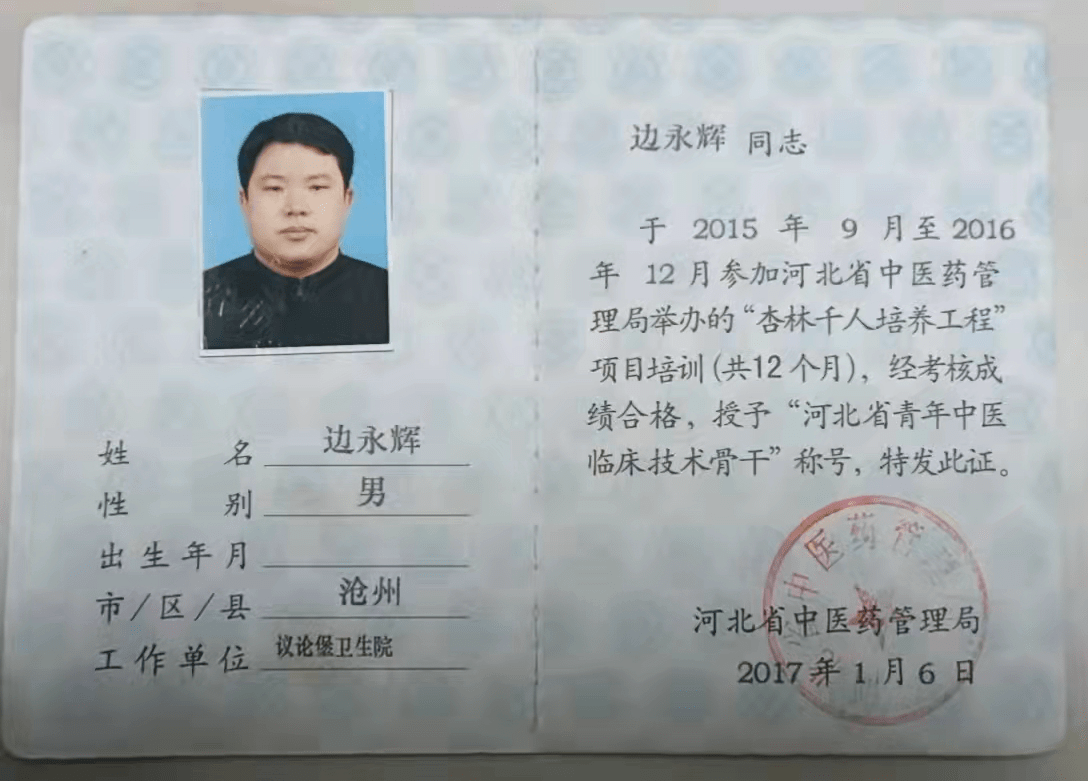 姓 名 边永辉
性 别 男
出生年月
市/区/县 沧州
工作单位 议论堡卫生院
边永辉 同志
于 2015 年 9 月至 2016
年 12 月参加河北省中医药管
理局举办的“杏林千人培养工程”
项目培训(共12个月)，经考核成
绩合格，授予“河北省青年中医
临床技术骨干”称号，特发此证。
中医药
河北省中医药管理局
2017 年 1 月 6 日